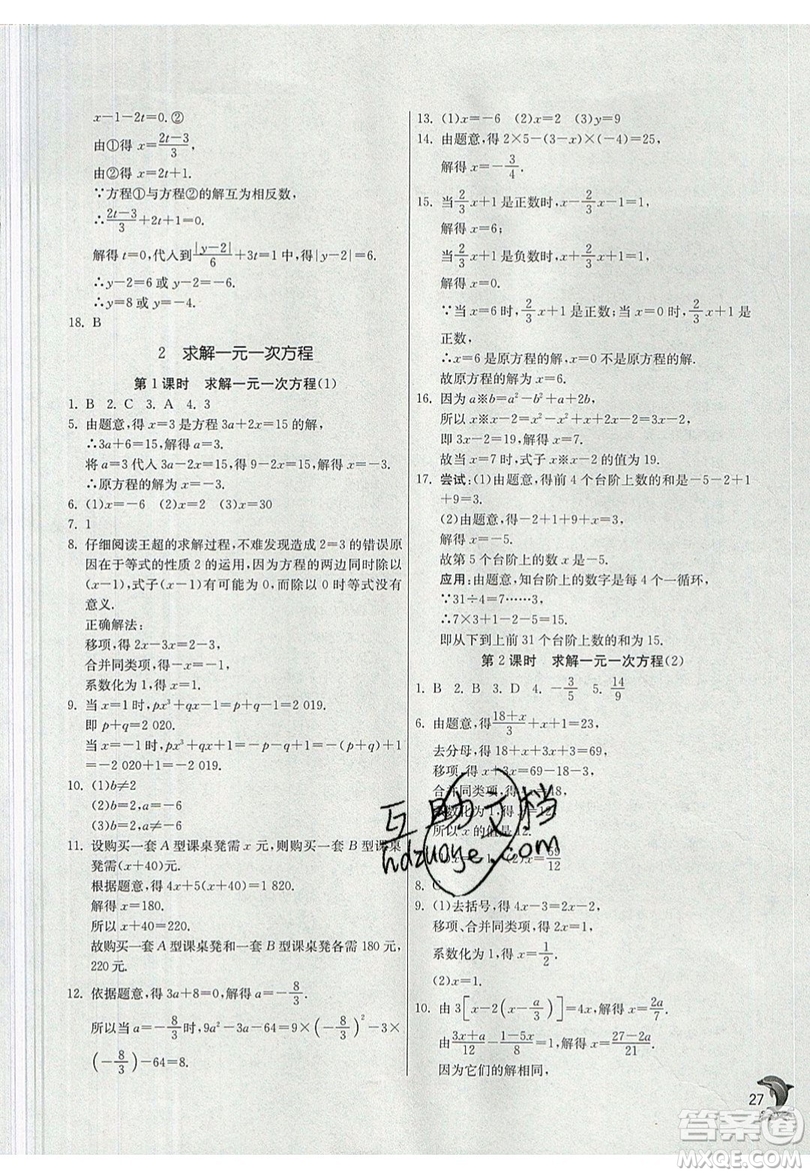 x-1-2t=0.②
由①得 x=\frac{2t-3}{3},
由②得 x=2t+1.
∵方程①与方程②的解互为相反数,
∴\frac{2t-3}{3}+2t+1=0.
解得 t=0,代入到\frac{|y-2|}{6}+3t=1 中,得|y-2|=6.
∴y-2=6 或 y-2=-6.
∴y=8 或 y=-4.
18. B
2 求解一元一次方程
第 1 课时 求解一元一次方程(1)
1. B 2. C 3. A 4. 3
5. 由题意,得 x=3 是方程 3a+2x=15 的解,
∴3a+6=15,解得 a=3.
将 a=3 代入 3a-2x=15,得 9-2x=15,解得 x=-3.
∴原方程的解为 x=-3.
6. (1)x=-6 (2)x=6 (3)x=30
7. 1
8. 仔细阅读王超的求解过程,不难发现造成 2=3 的错误原
因在于等式的性质 2 的运用,因为方程的两边同时除以
(x-1),式子(x-1)有可能为 0,而除以 0 时等式没有
意义.
正确解法:
移项,得 2x-3x=2-3,
合并同类项,得-x=-1,
系数化为 1,得 x=1.
9. 当 x=1 时,px³+qx+1=p+q+1=2 019.
即 p+q=2 020.
当 x=-1 时,px³+qx+1=-p-q+1=-(p+q)+1
=-2 020+1=-2 019.
10. (1)b≠2
(2)b=2,a=-6
(3)b=2,a≠-6
11. 设购买一套 A 型课桌凳需 x 元,则购买一套 B 型课桌
凳需(x+40)元.
根据题意,得 4x+5(x+40)=1 820.
解得 x=180.
所以 x+40=220.
故购买一套 A 型课桌凳和一套 B 型课桌凳各需 180 元,
220 元.
12. 依据题意,得 3a+8=0,解得 a=-\frac{8}{3}.
所以当 a=-\frac{8}{3}时,9a²-3a-64=9×(-\frac{8}{3})²-3×
(-\frac{8}{3})-64=8.
13. (1)x=-6 (2)x=2 (3)y=9
14. 由题意,得 2×5-(3-x)×(-4)=25,
解得 x=-\frac{3}{4}.
15. 当\frac{2}{3}x+1 是正数时,x-\frac{2}{3}x-1=1.
解得 x=6;
当\frac{2}{3}x+1 是负数时,x+\frac{2}{3}x+1=1.
解得 x=0.
∵当 x=6 时,\frac{2}{3}x+1 是正数;当 x=0 时,\frac{2}{3}x+1 是
正数,
∴x=6 是原方程的解,x=0 不是原方程的解.
故原方程的解为 x=6.
16. 因为 a※b=a²-b²+a+2b,
所以 x※x-2=x²-(x-2)²+x+2(x-2)=3x-2,
即 3x-2=19.解得 x=7.
故当 x=7 时,式子 x※x-2 的值为 19.
17. 尝试:(1)由题意,得前 4 个台阶上数的和是-5-2+1
+9=3.
(2)由题意,得-2+1+9+x=3,
解得 x=-5.
故第 5 个台阶上的数 x 是-5.
应用:由题意,知台阶上的数字是每 4 个一循环,
∵31÷4=7……3,
∴7×3+1-2-5=15.
即从下到上前 31 个台阶上数的和为 15.
第 2 课时 求解一元一次方程(2)
1. B 2. B 3. D 4. -\frac{3}{5} 5. \frac{14}{9}
6. 由题意,得\frac{18+x}{3}+x+1=23,
去分母,得 18+x+3x+3=69,
移项,得 x+3x=69-18-3,
合并同类项,得
所以 x 的值为 12.
8. C
9. (1)去括号,得 4x-3x+2x=2x-3x+2,
移项、合并同类项,得 4x=2,
系数化为 1,得 x=\frac{1}{2}.
(2)x=1.
10. 由 3[x-2(x-\frac{a}{3})]=4x,解得 x=\frac{2a}{7}.
由\frac{3x+a}{12}-\frac{1-5x}{8}=1,解得 x=\frac{27-2a}{21}.
因为它们的解相同,
27
互助文档
hdzuoye.com
答案圈
MXQE.COM